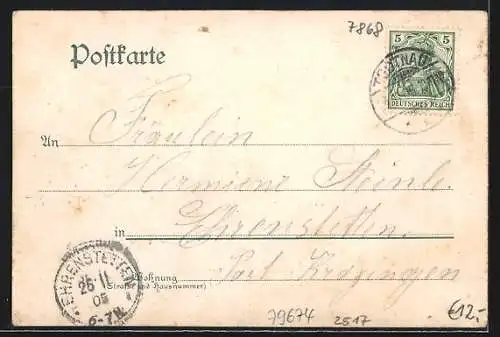 7868
Postkarte
5 5
TODTNAU
DEUTSCHES REICH
An Fräulein
Hermiene Steinle.
in Ehrenstetten.
Post Krozingen
Wohnung
(Straße und Hausnummer)
EHRENSTETTEN
25 11
05
6-7N.
79674 2517
€12,-